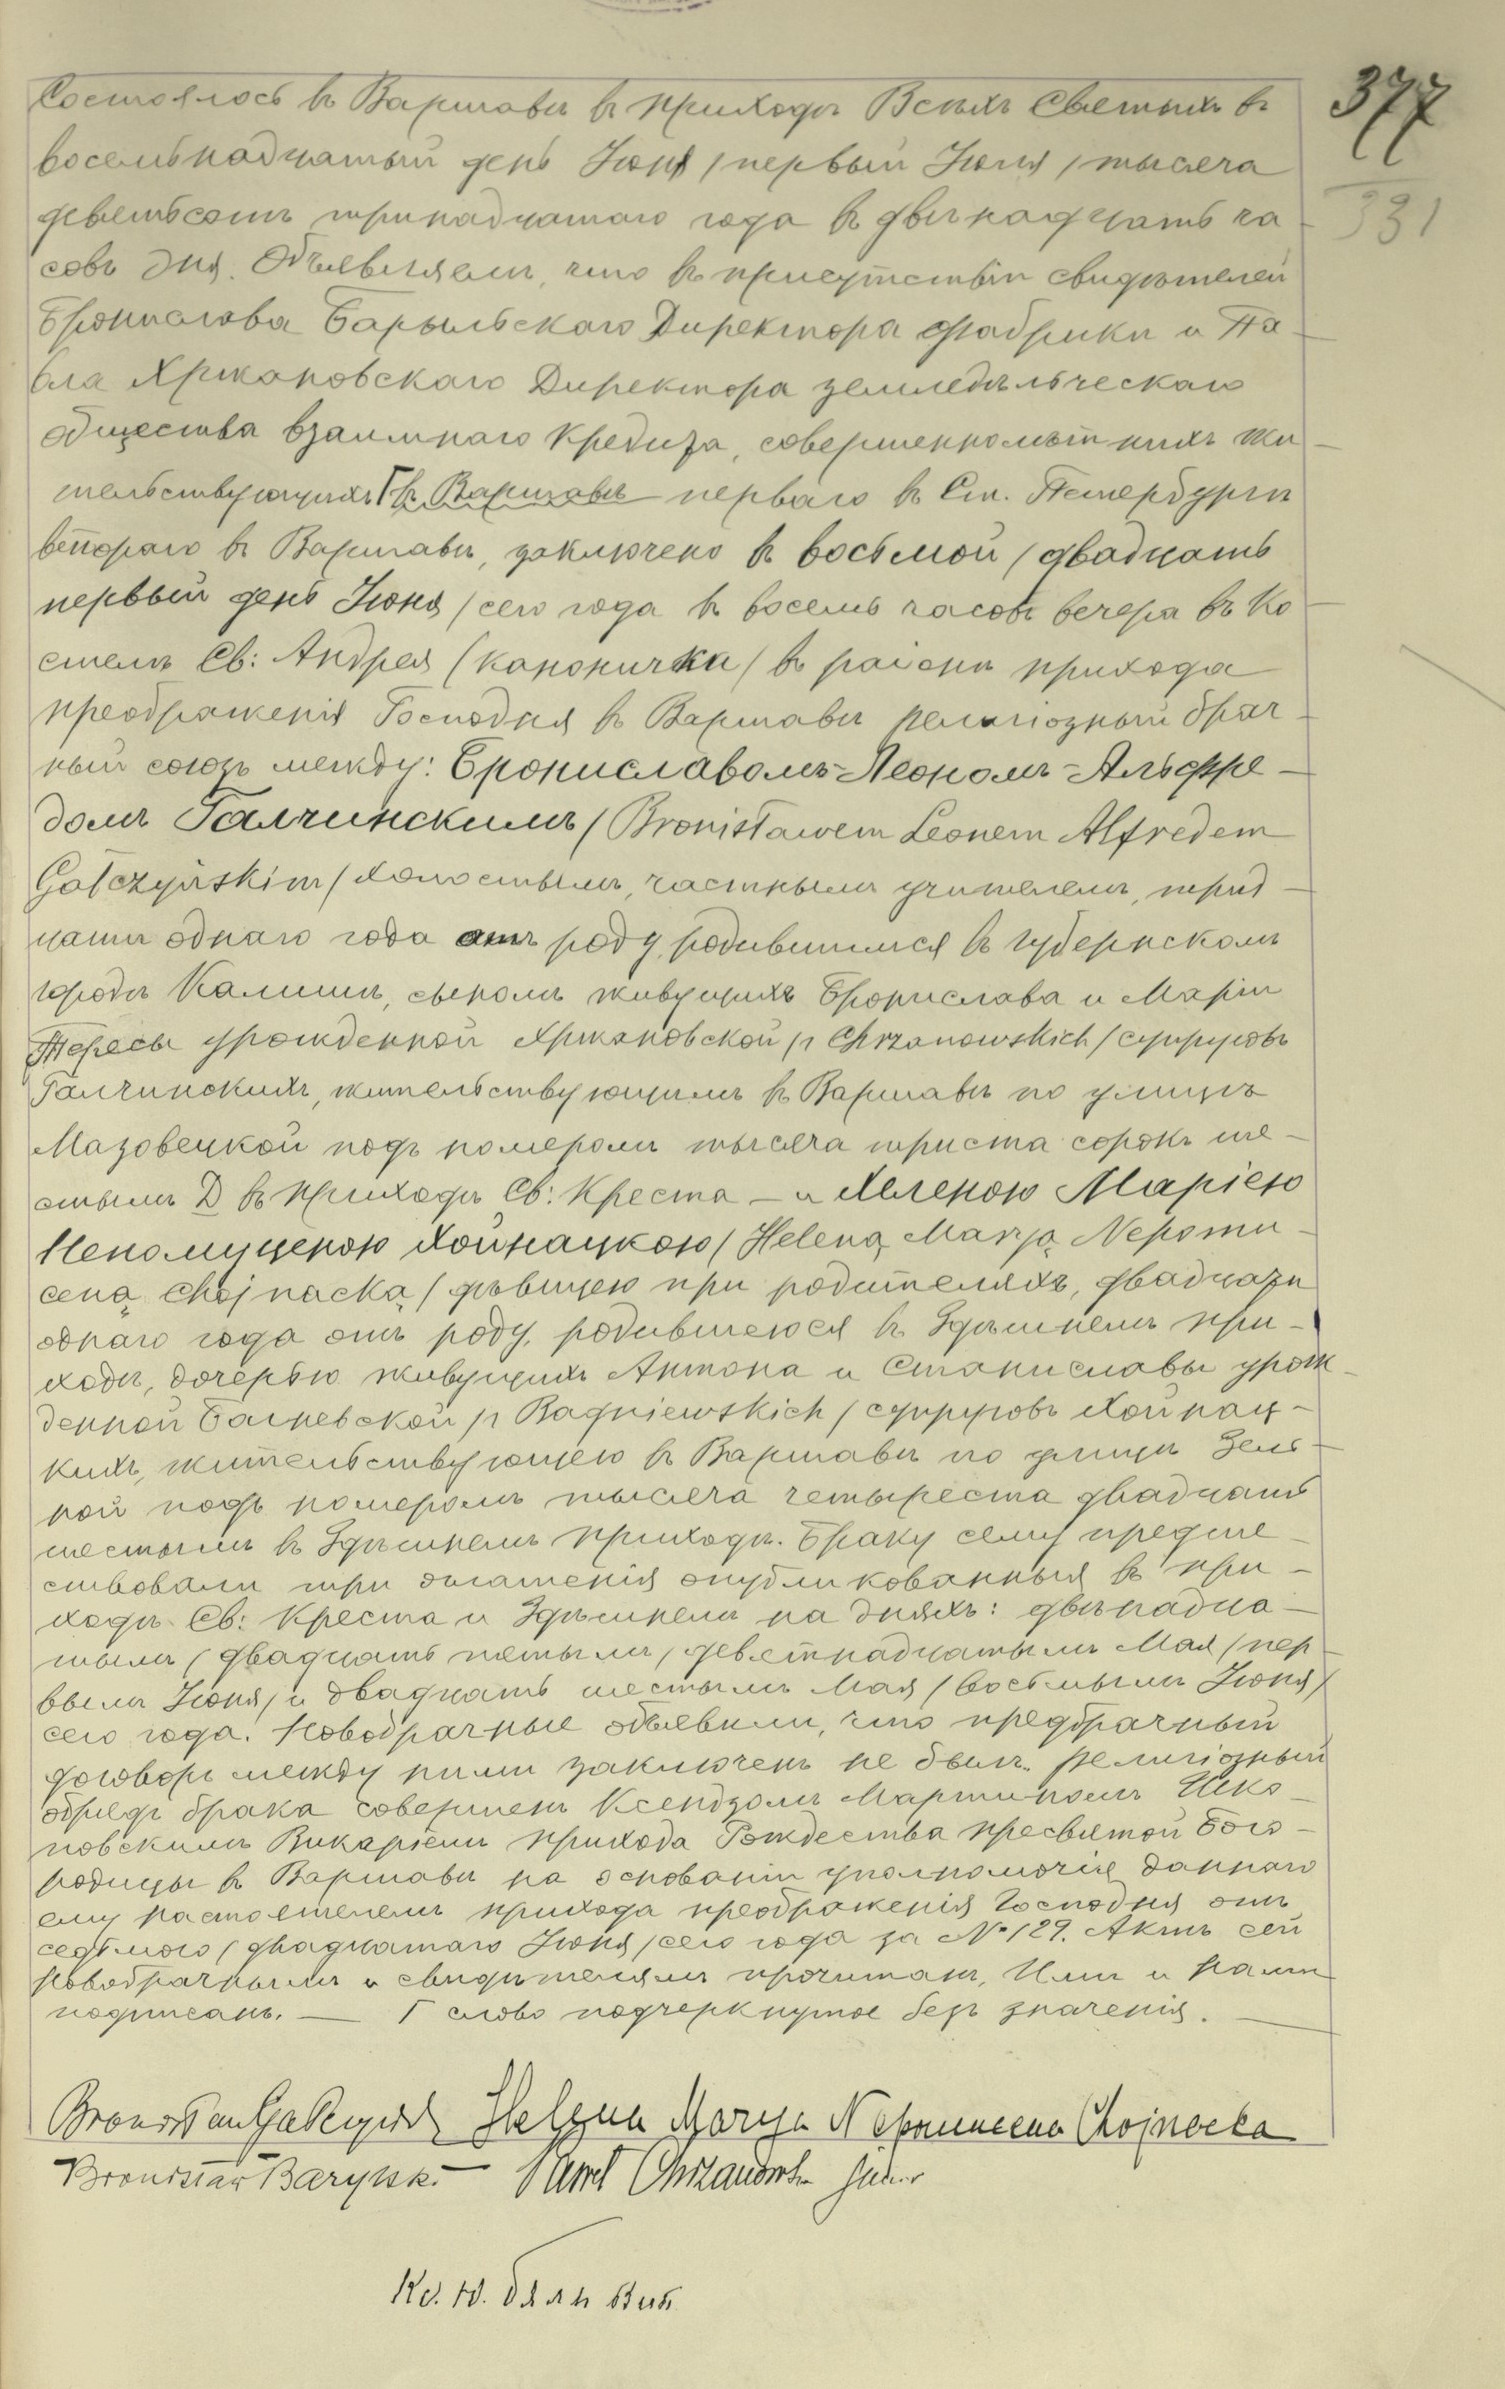 377
331
Состоялось въ Варшавѣ въ приходѣ Всѣхъ Святыхъ въ
восемьнадцатый день Іюня /первый Іюля/ тысяча
девятьсотъ тринадцатаго года въ двѣнадцать ча-
совъ дня. Объявляемъ, что въ присутствіи свидѣтелей
Бронислава Барыльскаго Директора фабрики и Па-
вла Хржановскаго Директора земледѣльческаго
общества взаимнаго кредита, совершеннолѣтнихъ жи-
тельствующихъ Г въ Варшавѣ перваго въ Ст. Петербургѣ
втораго въ Варшавѣ, заключено въ восьмой /двадцать
первый день Іюня/ сего года въ восемь часовъ вечера въ Ко-
стелѣ Св: Андрея (канонички/ въ раіонѣ прихода
преображенія Господня въ Варшавѣ религіозный брач-
ный союзъ между: Брониславомъ-Леономъ-Альфре-
домъ Галчинскимъ /Bronisławem Leonem Alfredem
Gałczyńskim/ холостымъ, частнымъ учителемъ, трид-
цати однаго года отъ роду, родившимся въ губернскомъ
городѣ Калишѣ, сыномъ живущихъ Бронислава и Маріи
Тересы урожденной Хржановской /z Chrzanowskich/ супруговъ
Галчинскихъ, жительствующимъ въ Варшавѣ по улицѣ
Мазовецкой подъ номеромъ тысяча триста сорокъ ше-
стымъ D въ приходѣ Св: Креста — и Хеленою Маріею
Непомуценою Хойнацкою /Heleną Maryą Nepomu-
ceną Chojnacką/ дѣвицею при родителяхъ, двадцати
однаго года отъ роду, родившеюся въ здѣшнемъ при-
ходѣ, дочерью живущихъ Антона и Станиславы урож-
денной Багневской /z Bagniewskich/ супруговъ Хойнац-
кихъ, жительствующею въ Варшавѣ по улицѣ Зель-
ной подъ номеромъ тысяча четыреста двадцать
шестымъ въ здѣшнемъ приходѣ. Браку сему предше-
ствовали три оглашенія опубликованныя въ при-
ходѣ Св: Креста и здѣшнемъ на дняхъ: двѣнадца-
тымъ /двадцать пятымъ/ девятнадцатымъ Мая /пер-
вымъ Іюня/ и двадцать шестымъ Мая /восьмымъ Іюня/
сего года. Новобрачные объявили, что предбрачный
договоръ между ними заключенъ не былъ. Религіозный
обрядъ брака совершенъ Ксендзомъ Мартиномъ Шко-
повскимъ Викаріемъ прихода Рождества пресвятой Бого-
родицы въ Варшавѣ на основаніи уполномочія даннаго
ему настоятелемъ прихода преображенія Господня отъ
седьмого /двадцатаго Іюня/ сего года за № 129. Актъ сей
Новобрачнымъ и свидѣтелямъ прочитанъ, Ими и Нами
подписанъ. — Г слово подчеркнутое безъ значенія. —
Bronisław Gałczyński Helena Marya Nepomucena Chojnacka
Bronisław Barylski — Paweł Chrzanowski junior
Кс. Ю.